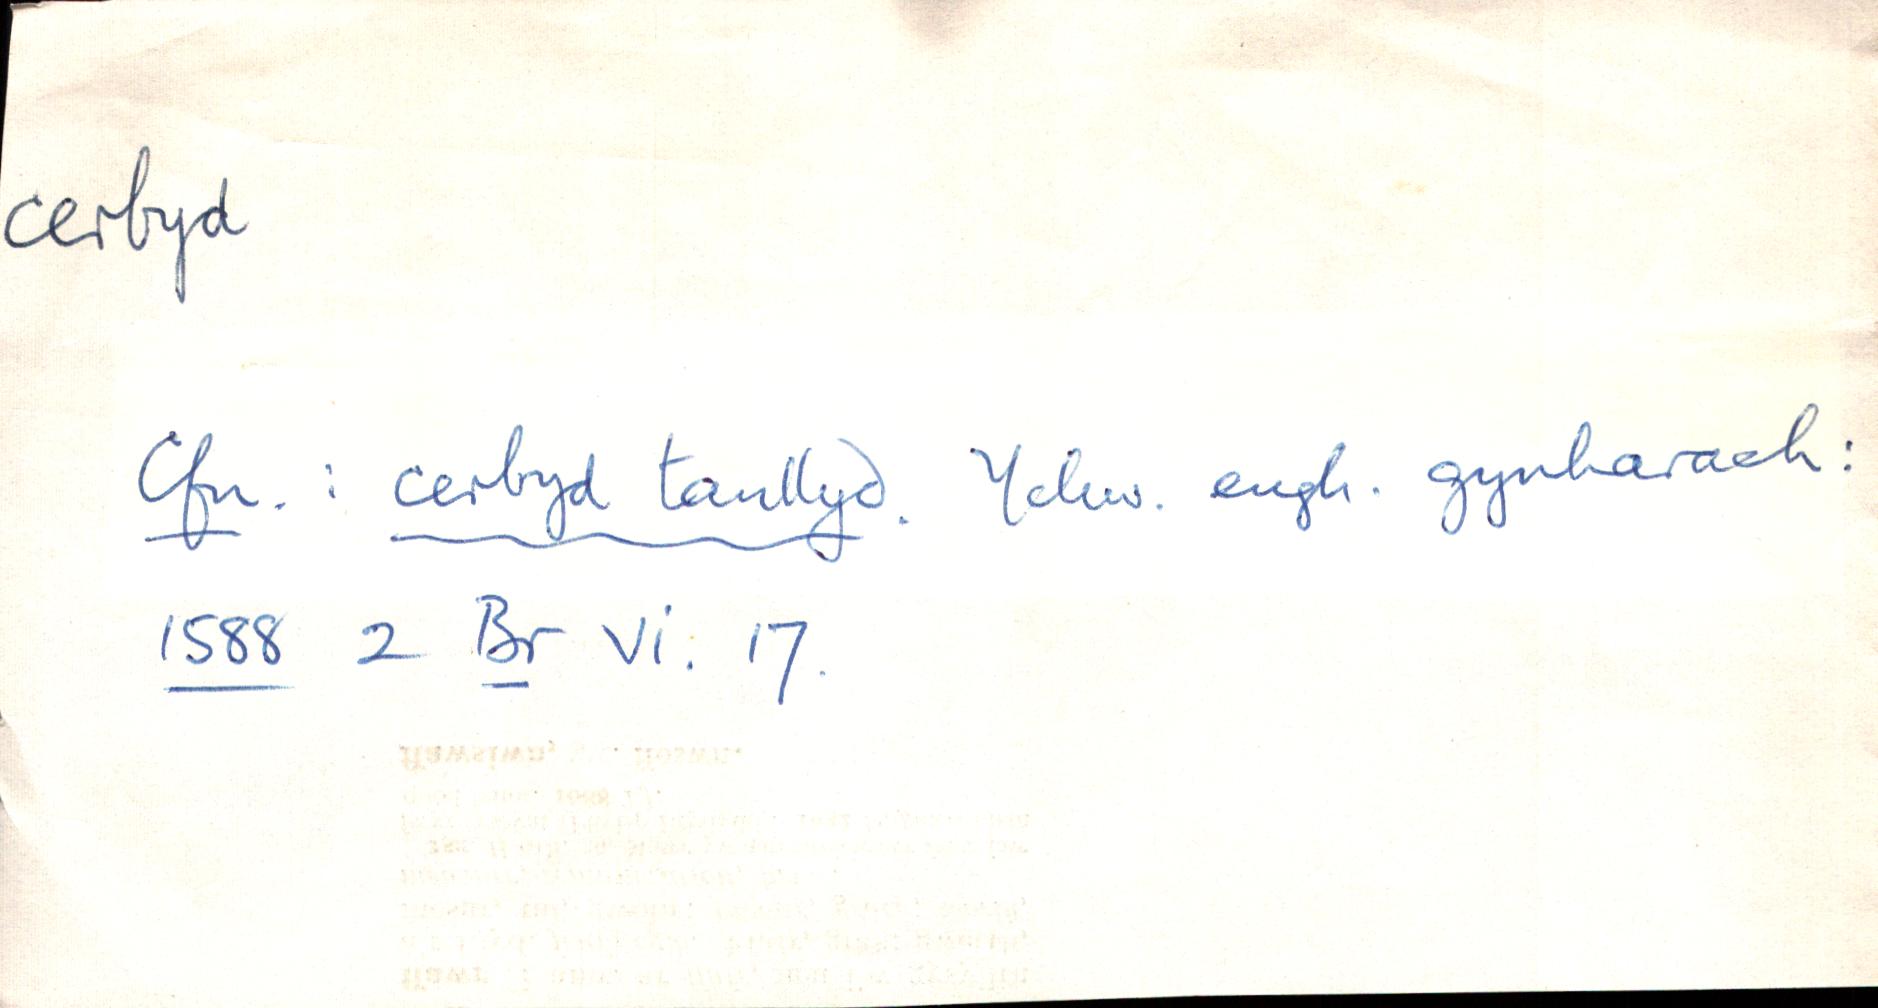 cerbyd
Cfn. : cerbyd tanllyd. Ychw. engh. gynharach:
1588 2 Br vi. 17.